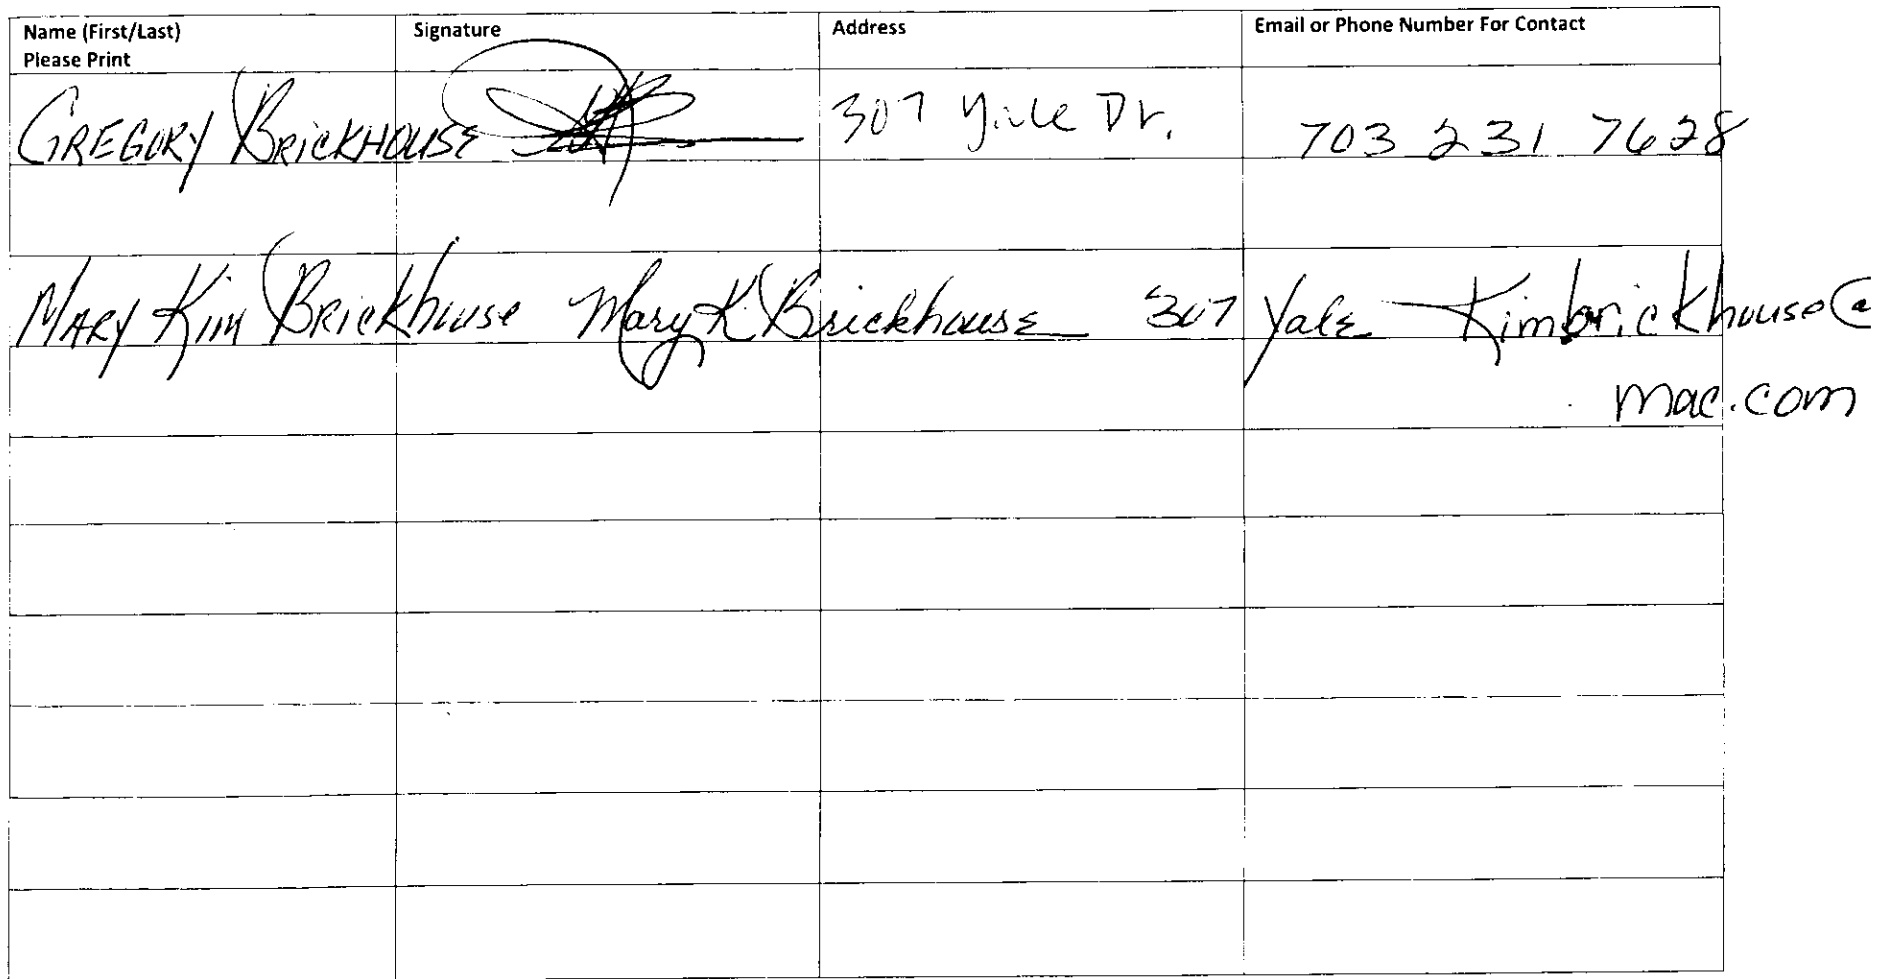 Name (First/Last) Signature Address Email or Phone Number For Contact
Please Print
GREGORY BRICKHOUSE 307 Yale Dr. 703 231 7628
MARY KIM BRICKhouse Mary K Brickhouse 307 Yale Kimbrickhouse@
mac.com